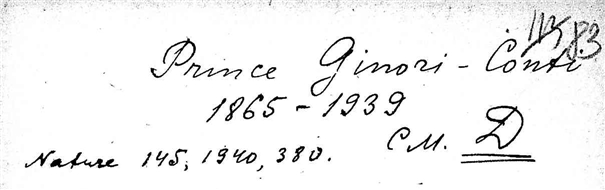 83
Prince Ginori - Conti
1865 - 1939
C M. D
Nature 145, 1940, 380.